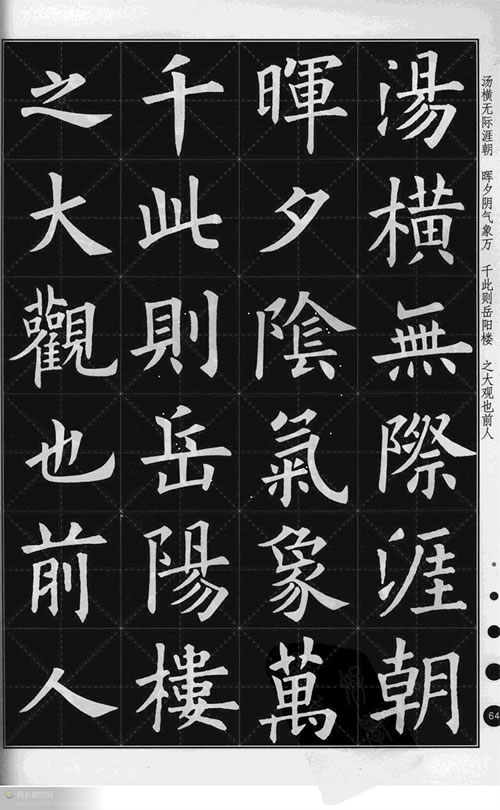 湯橫無際涯朝
暉夕陰氣象萬
千此則岳陽樓
之大觀也前人
汤横无际涯朝 晖夕阴气象万 千此则岳阳楼 之大观也前人
64